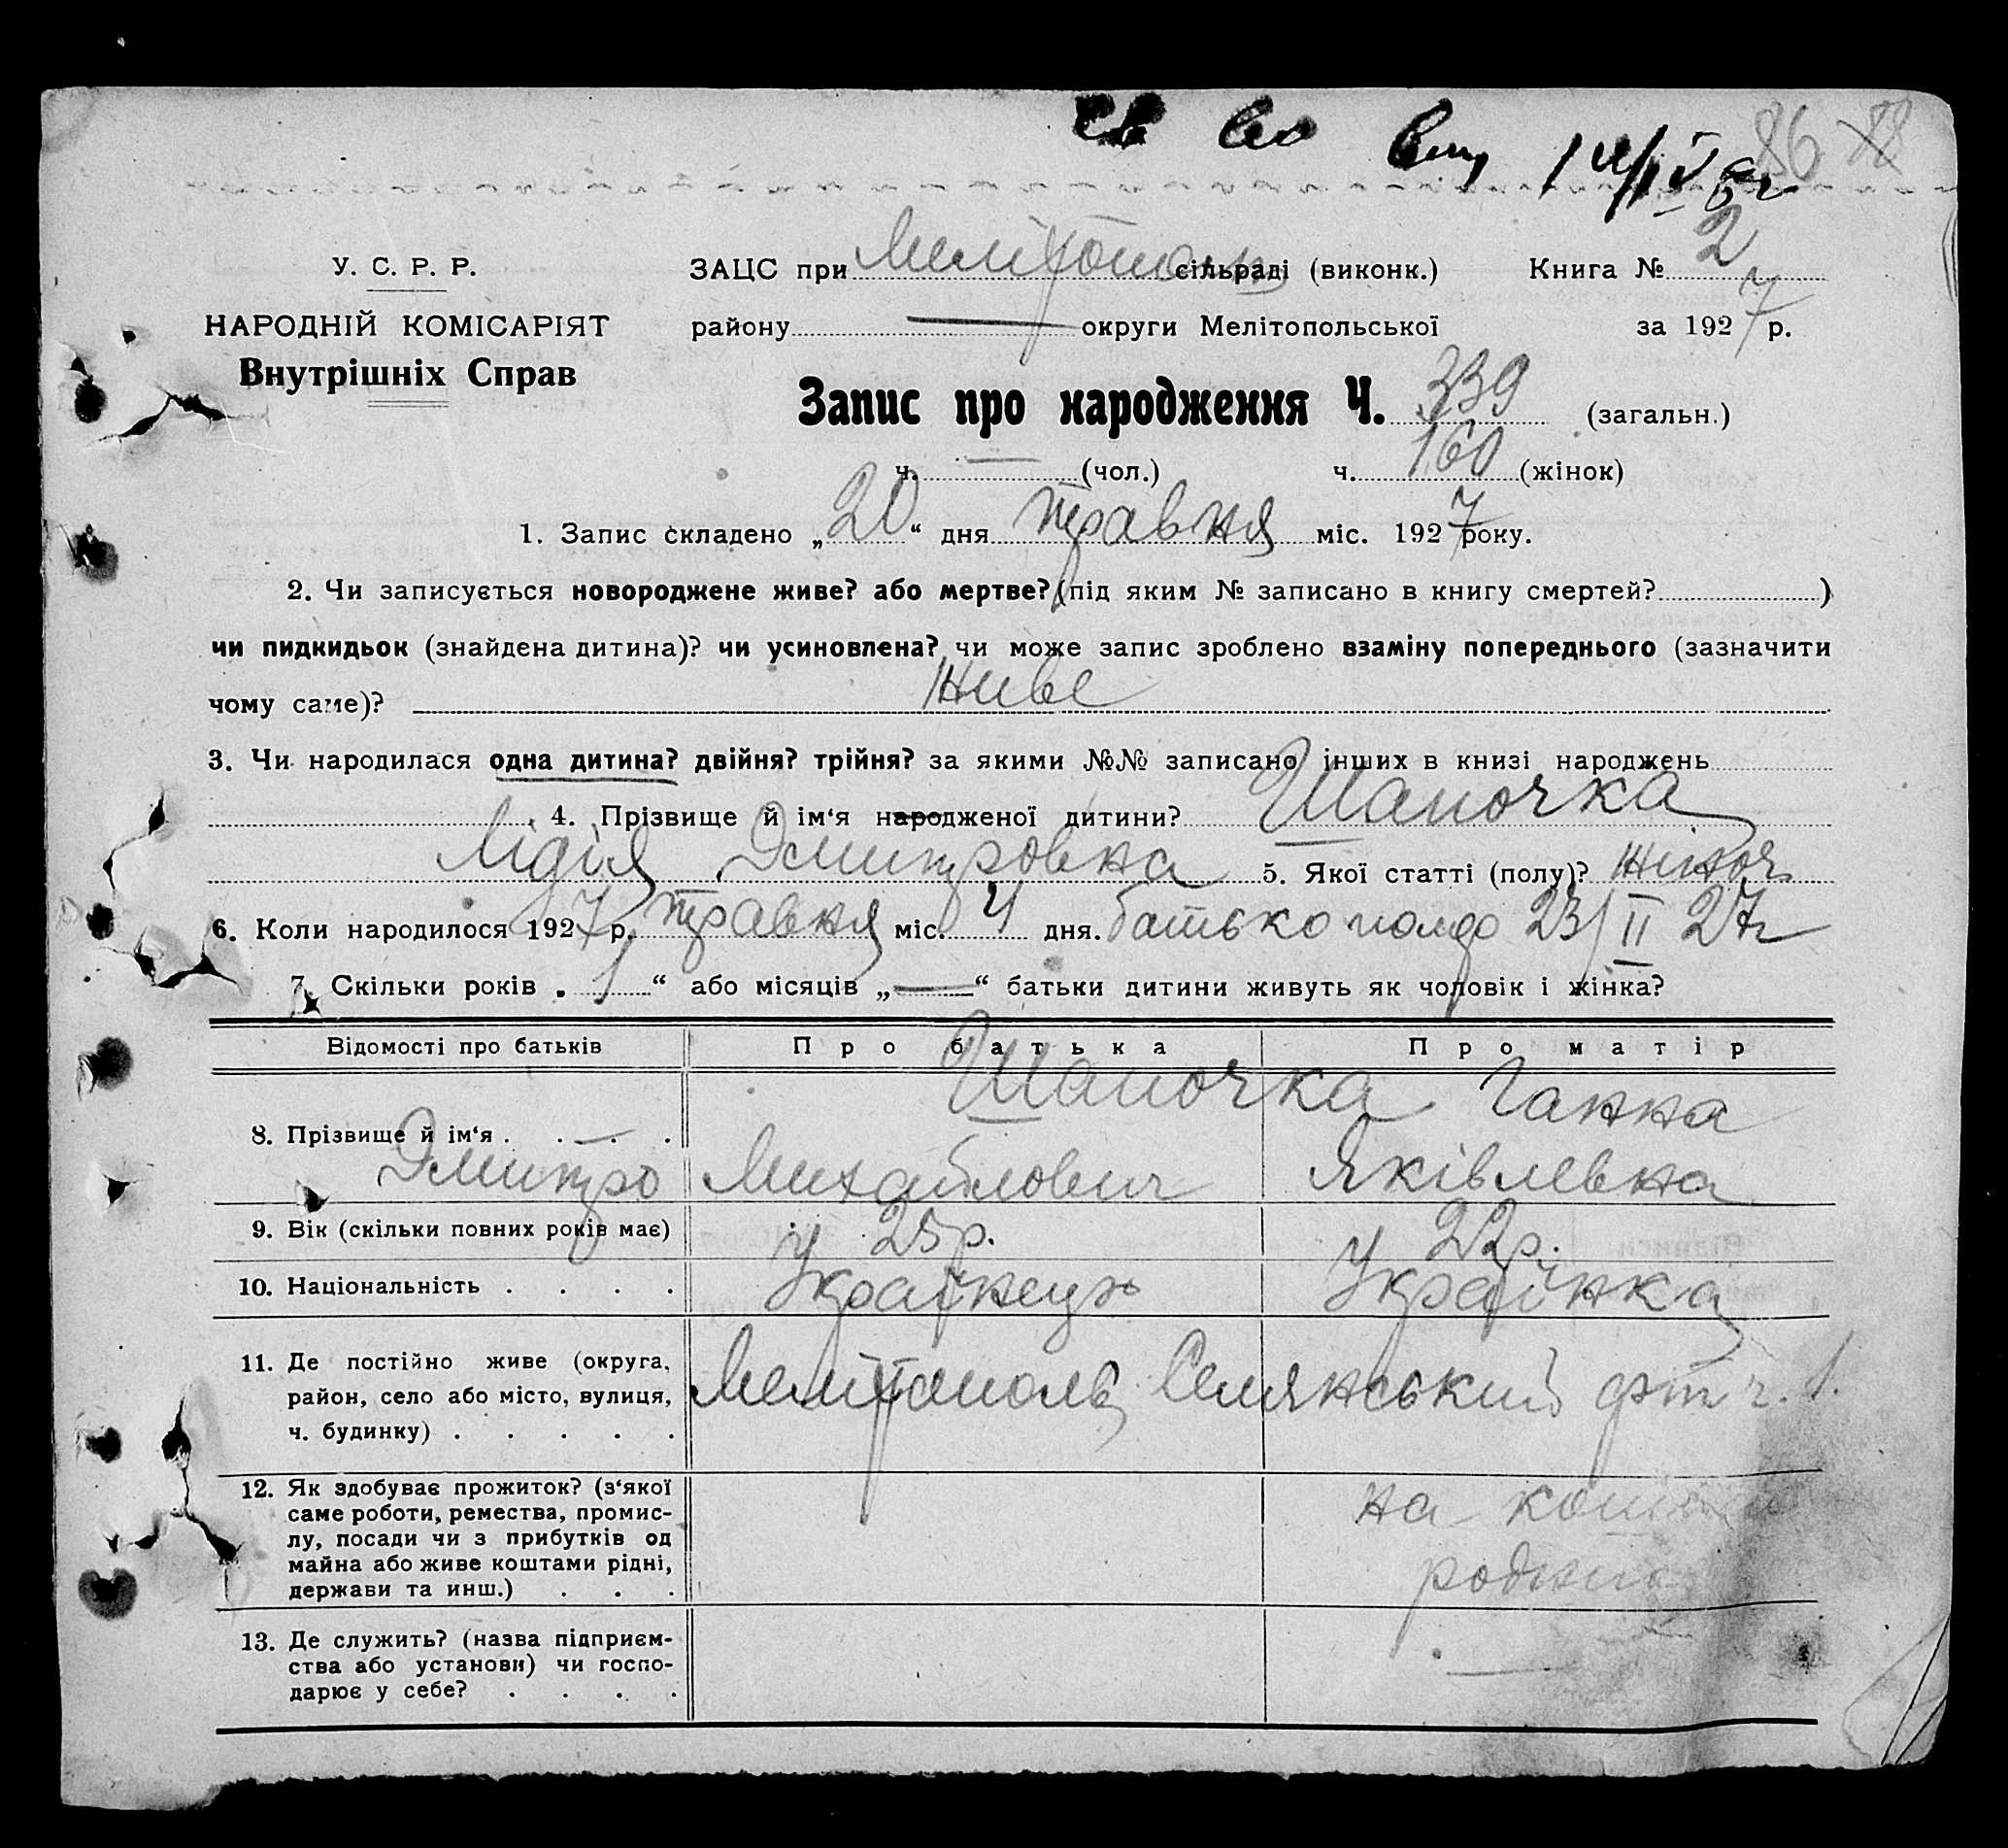 Св во
86 88
У. С. Р. Р.
НАРОДНІЙ КОМІСАРІЯТ
Внутрішніх Справ
ЗАЦС при Мелітопол сільраді (виконк.) Книга № 2
району — округи Мелітопольської за 1927 р.
Запис про народження Ч. 339 (загальн.)
ч. — (чол.) ч. 160 (жінок)
1. Запис складено „20“ дня травня міс. 1927 року.
2. Чи записується новороджене живе? або мертве? (під яким № записано в книгу смертей? )
чи пидкидьок (знайдена дитина)? чи усиновлена? чи може запис зроблено взаміну попереднього (зазначити
чому саме)? Живе
3. Чи народилася одна дитина? двійня? трійня? за якими №№ записано інших в книзі народжень
4. Прізвище й ім‘я народженої дитини? Шапочка
Лідія Дмитровна 5. Якої статті (полу)? жіноч
6. Коли народилося 1927 р. травня міс. 4 дня. батько 23/II 27г
7. Скільки років „1“ або місяців „—“ батьки дитини живуть як чоловік і жінка?
Відомості про батьків Про батька Про матір
8. Прізвище й ім‘я . . . . Шапочка Ганна
Дмитро Михайлович Яківлевна
9. Вік (скільки повних років має) 25р. 22р.
10. Національність . . . . Українець Українка
11. Де постійно живе (округа,
район, село або місто, вулиця,
ч. будинку) . . . . . Мелітополь, Семянський ч. 1.
12. Як здобуває прожиток? (з‘якої
саме роботи, ремества, промис-
лу, посади чи з прибутків од
майна або живе коштами рідні,
держави та инш.) . . . на кошти
13. Де служить? (назва підприєм-
ства або установи) чи госпо-
дарює у себе? . . . . —